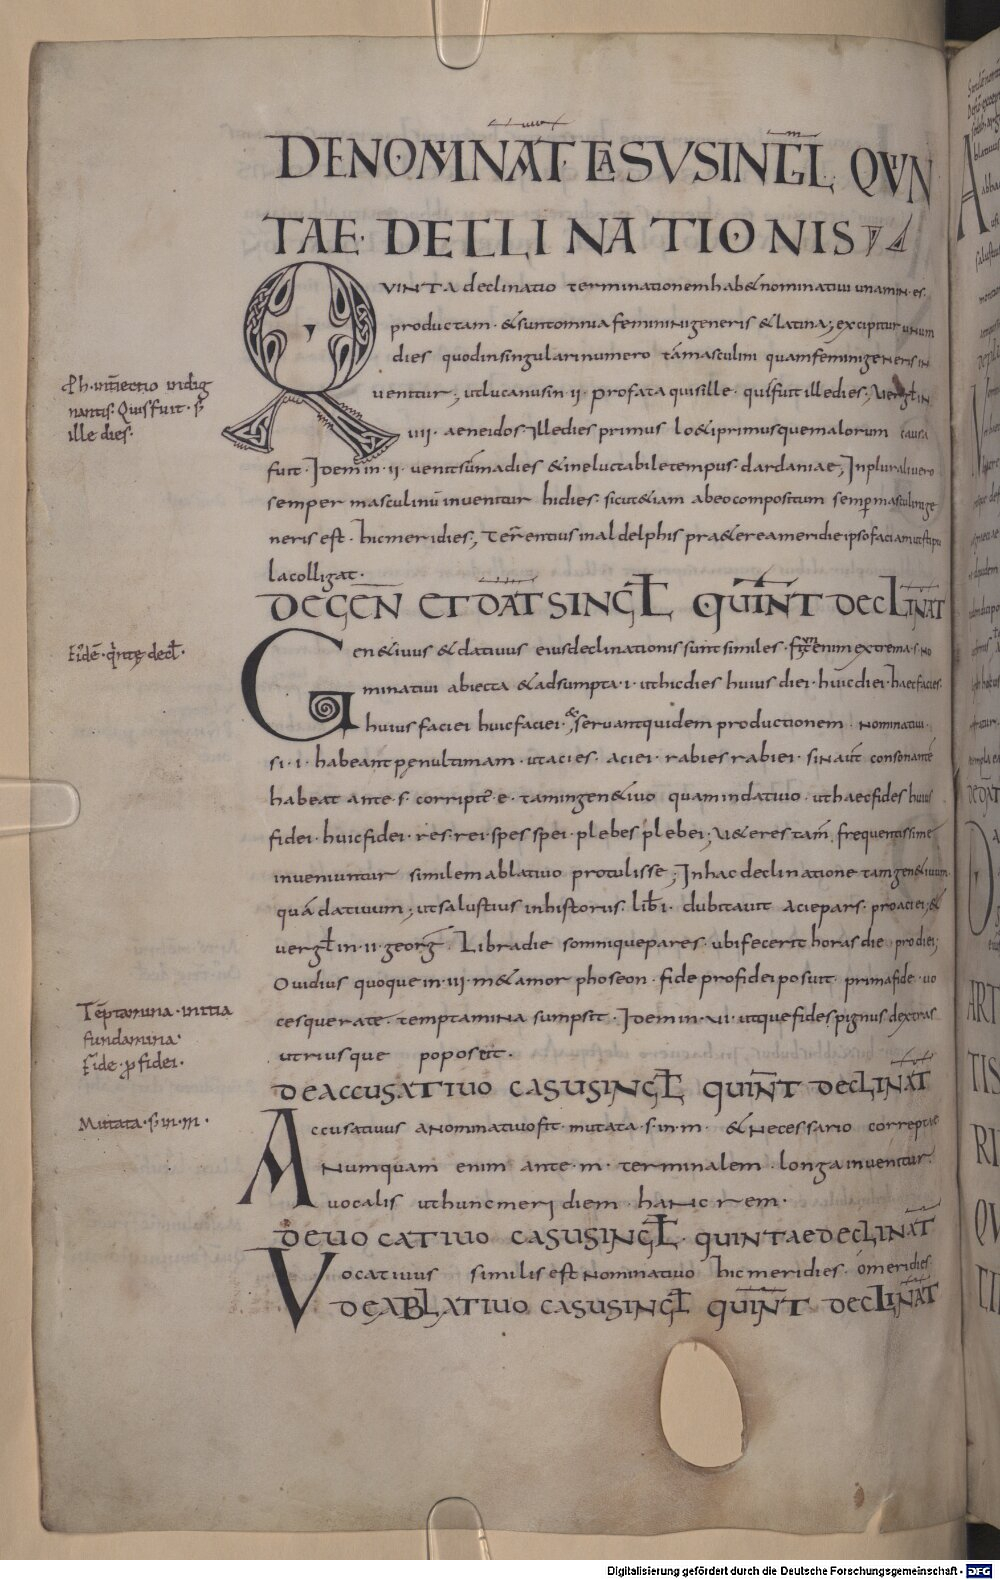 DENOMINAT· CASU SINGL QVIN
TAE· DECLINATIONIS
QVINTA declinatio terminationem hab& nominatiui unam in·es·
productam· & sunt omnia feminini generis & latina; excipitur unum
dies quod in singulari numero tā masculini quam feminini generis in
uenitur; ut lucanus in·ii· profata quis ille· quis fuit ille dies; Uergł in
uii· aeneidos· Ille dies primus lo&i primusque malorum causa
fuit· Idem in·ii· uenit sūma dies & ineluctabile tempus· dardaniae; In plurali uero
semper masculinū inuenitur hi dies· sicut &iam ab eo compositum semper masculini ge
neris est· hic meridies; Terentius in aldelphis praeterea meridie ipso faciam ut stipu
la colligat·
DE GEN ET DAT SINGŁ QUINT DECLINAT
Gen&iuus & datiuus eius declinationis sunt similes· fit enim extrema·s·no
minatiui abiecta & adsumpta·i· ut hic dies huius diei· huic diei· haec facies·
huius faciei huic faciei· & seruant quidem productionem· nominatiui·
si·i· habeant penultimam· ut acies· aciei· rabies rabiei· sin aut consonantē
habeat ante·s· corripit·e· tam in gen&iuo quam in datiuo· ut haec fides huius
fidei· huic fidei· res· rei· spes spei· plebes plebei; Ueteres tam frequentissime
inueniuntur similem ablatiuo protulisse; In hac declinatione tam gen&iuum
quā datiuum; ut salustius in historiis· lib·i· dubitauit acie pars· pro aciei; &
uergł in·ii·georg· Libra die somnique pares· ubi fecerit horas die pro diei;
Ouidius quoque in·iii·m&amorphoseon· fide pro fidei posuit· prima fide·uo
cesque rate· temptamina sumpsit· Idem in·uii· utque fides pignus dextras
utriusque poposcit·
DE ACCUSATIUO CASU SINGŁ QUINT DECLINAT
Accusatiuus a nominatiuo fit· mutata·s·in·m· & necessario correptae
Numquam enim ante·m· terminalem· longa inuenitur·
uocalis ut hunc meridiem· hanc rem·
DE UOCATIUO CASU SINGŁ· QUINTAE DECLINAT
Vocatiuus similis est nominatiuo hic meridies· ó meridies·
DE ABLATIUO CASU SINGŁ QUINT DECLINAT
Ph·intiectio indig
nantis· Quis fuit·s̄
ille dies·
Eidē·q̄nte decł·
Tēptamina·initia
fundamina·
Fide·p̄ fidei·
Mutata·s·in·m·
Digitalisierung gefördert durch die Deutsche Forschungsgemeinschaft - DFG